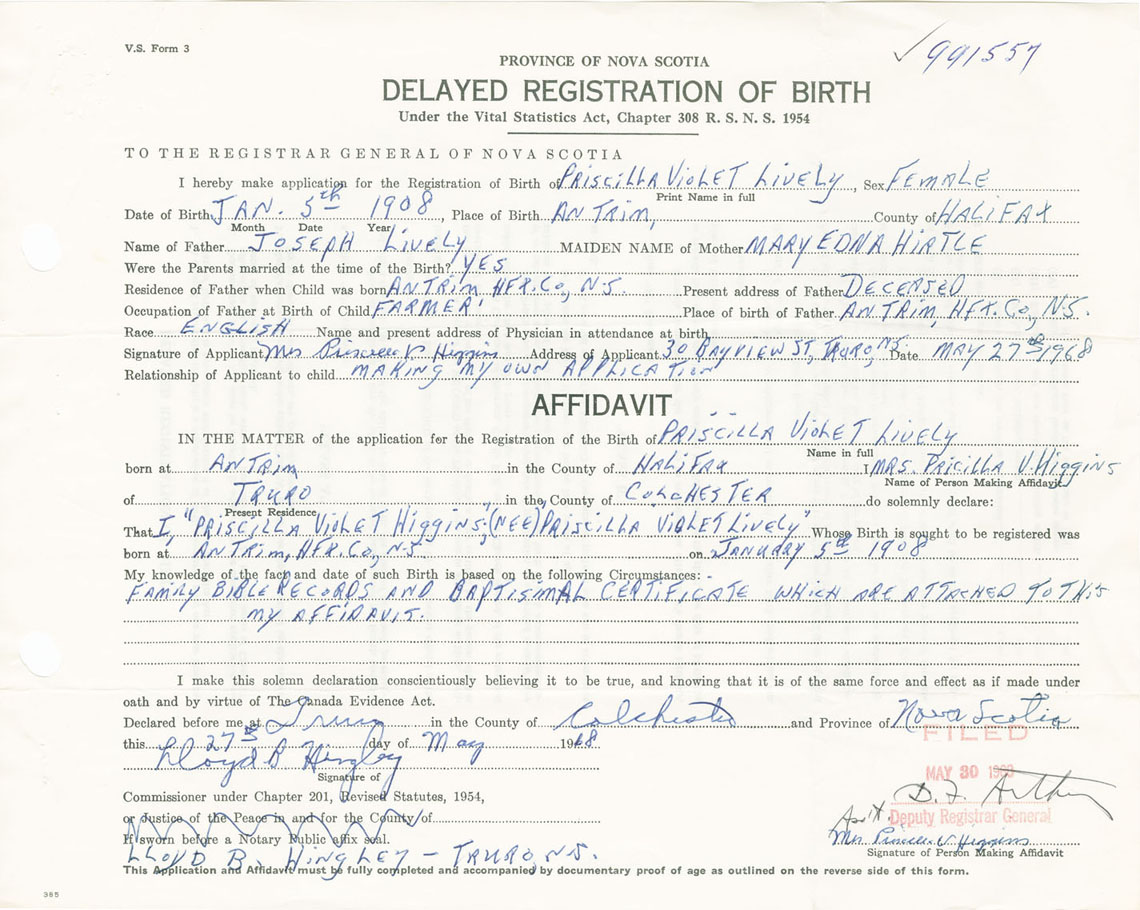 V.S. Form 3
991557
PROVINCE OF NOVA SCOTIA
DELAYED REGISTRATION OF BIRTH
Under the Vital Statistics Act, Chapter 308 R. S. N. S. 1954
TO THE REGISTRAR GENERAL OF NOVA SCOTIA
I hereby make application for the Registration of Birth of PRISCILLA VIOLET LIVELY, Sex FEMALE
Print Name in full
Date of Birth JAN. 5th 1908, Place of Birth ANTRIM, County of HALIFAX
Month Date Year
Name of Father JOSEPH LIVELY MAIDEN NAME of Mother MARY EDNA HIRTLE
Were the Parents married at the time of the Birth? YES
Residence of Father when Child was born ANTRIM HFX. Co, N.S. Present address of Father DECERSED
Occupation of Father at Birth of Child FARMER Place of birth of Father ANTRIM, HFX. Co, N.S.
Race ENGLISH Name and present address of Physician in attendance at birth
Signature of Applicant Mrs Priscilla V. Higgins Address of Applicant 30 BAYVIEW ST, TRURO, N.S. Date MAY 27th 1968
Relationship of Applicant to child MAKING MY OWN APPLICATION
AFFIDAVIT
IN THE MATTER of the application for the Registration of the Birth of PRISCILLA VIOLET LIVELY
Name in full
born at ANTRIM in the County of HALIFAX I MRS. PRICILLA V. Higgins
Name of Person Making Affidavit
of TRURO in the County of COLCHESTER do solemnly declare:
Present Residence
That I, "PRISCILLA VIOLET HIGGINS", (NEE) "PRISCILLA VIOLET LIVELY" Whose Birth is sought to be registered was
born at ANTRIM, HFX. Co, N.S. on JANUARY 5th 1908
My knowledge of the fact and date of such Birth is based on the following Circumstances:
FAMILY BIBLE RECORDS AND BAPTISMAL CERTIFICATE WHICH ARE ATTACHED TO THIS
MY AFFIDAVIT.
I make this solemn declaration conscientiously believing it to be true, and knowing that it is of the same force and effect as if made under
oath and by virtue of The Canada Evidence Act.
Declared before me at Truro in the County of Colchester and Province of Nova Scotia
FILED
this 27th day of May 1968
Lloyd B Hingley
Signature of
MAY 30 1968
Commissioner under Chapter 201, Revised Statutes, 1954,
D. F. Arthur
or Justice of the Peace in and for the County of
Ass't. Deputy Registrar General
If sworn before a Notary Public affix seal.
Mrs Priscilla V. Higgins
Signature of Person Making Affidavit
LLOYD B. HINGLEY - TRURO, N.S.
This Application and Affidavit must be fully completed and accompanied by documentary proof of age as outlined on the reverse side of this form.
385